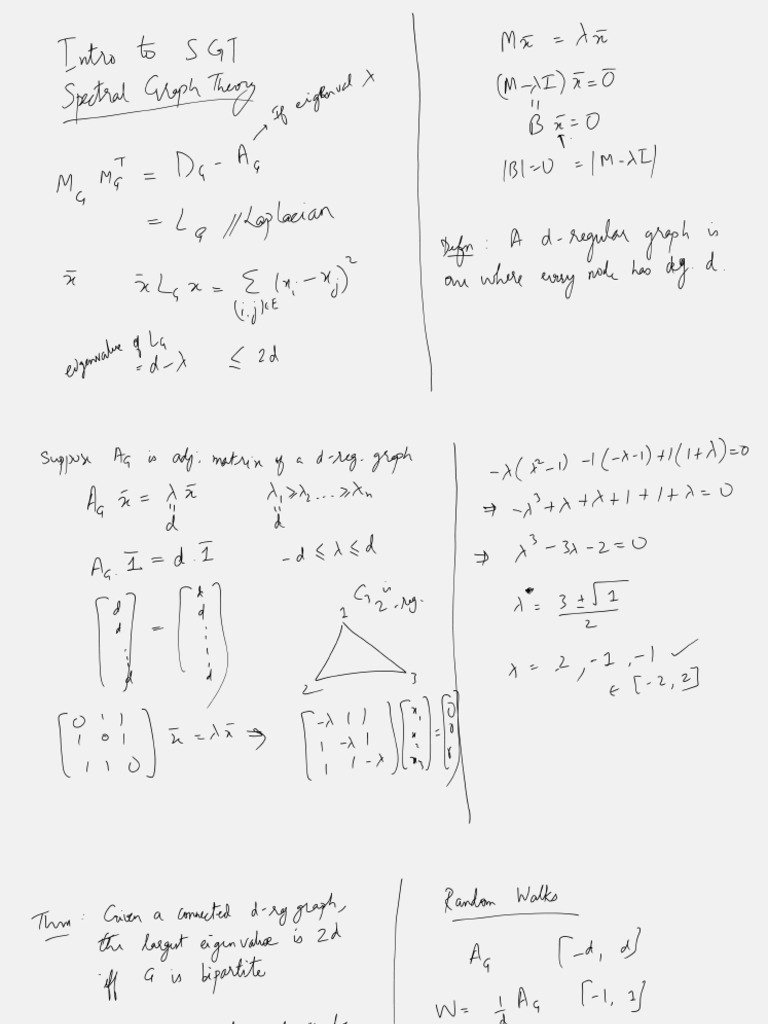 Intro to SGT
Spectral Graph Theory
M_G M_G^T = D_G - A_G → If eigenval λ
= L_G // Laplacian
x̄ x̄ L_G x = Σ_{(i,j)∈E} (x_i - x_j)^2
eigenvalue of L_G
= d - λ ≤ 2d
M x̄ = λ x̄
(M - λI) x̄ = 0̄
B x̄ = 0
|B| = 0 = |M - λI|
Defn : A d-regular graph is
one where every node has deg. d.
Suppose A_G is adj. matrix of a d-reg. graph
A_G x̄ = λ x̄ λ_1 ≥ λ_2 ... ≥ λ_n
d d
A_G . 1̄ = d . 1̄ -d ≤ λ ≤ d
[d d ⋮ d] = [d d ⋮ d]
G is 2-reg.
1
2 3
[0 1 1
1 0 1
1 1 0] x̄ = λ x̄ ⇒ [-λ 1 1
1 -λ 1
1 1 -λ] [x_1 x_2 x_3] = [0 0 0]
-λ(λ^2 - 1) -1(-λ-1) +1(1+λ) = 0
⇒ -λ^3 + λ + λ + 1 + 1 + λ = 0
⇒ λ^3 - 3λ - 2 = 0
λ = 3 ± √1 / 2
λ = 2, -1, -1 ✓
∈ [-2, 2]
Thm : Given a connected d-reg graph,
the largest eigenvalue is 2d
iff G is bipartite
Random Walks
A_G [-d, d]
W = 1/d A_G [-1, 1]